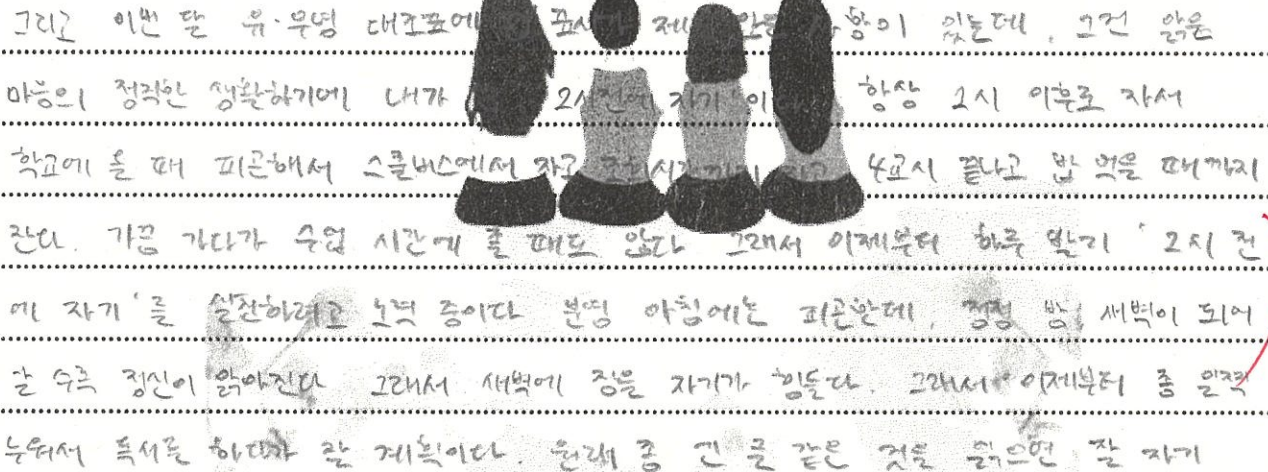 그리고 이번 달 유·무념 대조표에 표시가 제 안 항이 있는데, 그건 맑은
마음의 정직한 생활하기에 내가 2시전에 자기' 이 항상 2시 이후로 자서
학교에 올 때 피곤해서 스쿨버스에서 자고 조회시간까지 자고 4교시 끝나고 밥 먹을 때까지
잔다. 가끔 가다가 수업 시간에 졸 때도 있다 그래서 이제부터 하루 빨기 ' 2시 전
에 자기' 를 실천하려고 노력 중이다 분명 아침에는 피곤한데, 점점 밤, 새벽이 되어
갈 수록 정신이 맑아진다 그래서 새벽에 잠을 자기가 힘들다. 그래서 이제부터 좀 일찍
누워서 독서를 하다가 잘 계획이다. 원래 좀 긴 글 같은 것을 읽으면 잘 자기